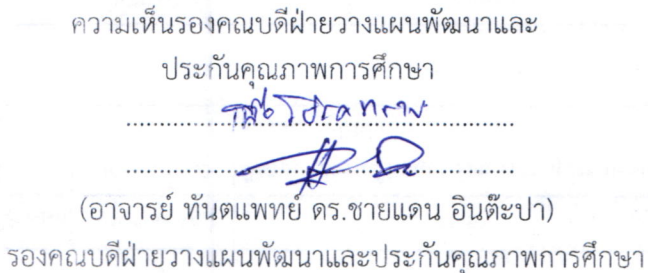 ความเห็นรองคณบดีฝ่ายวางแผนพัฒนาและ
ประกันคุณภาพการศึกษา
เพื่อโปรดทราบ
(อาจารย์ ทันตแพทย์ ดร.ชายแดน อินต๊ะปา)
รองคณบดีฝ่ายวางแผนพัฒนาและประกันคุณภาพการศึกษา